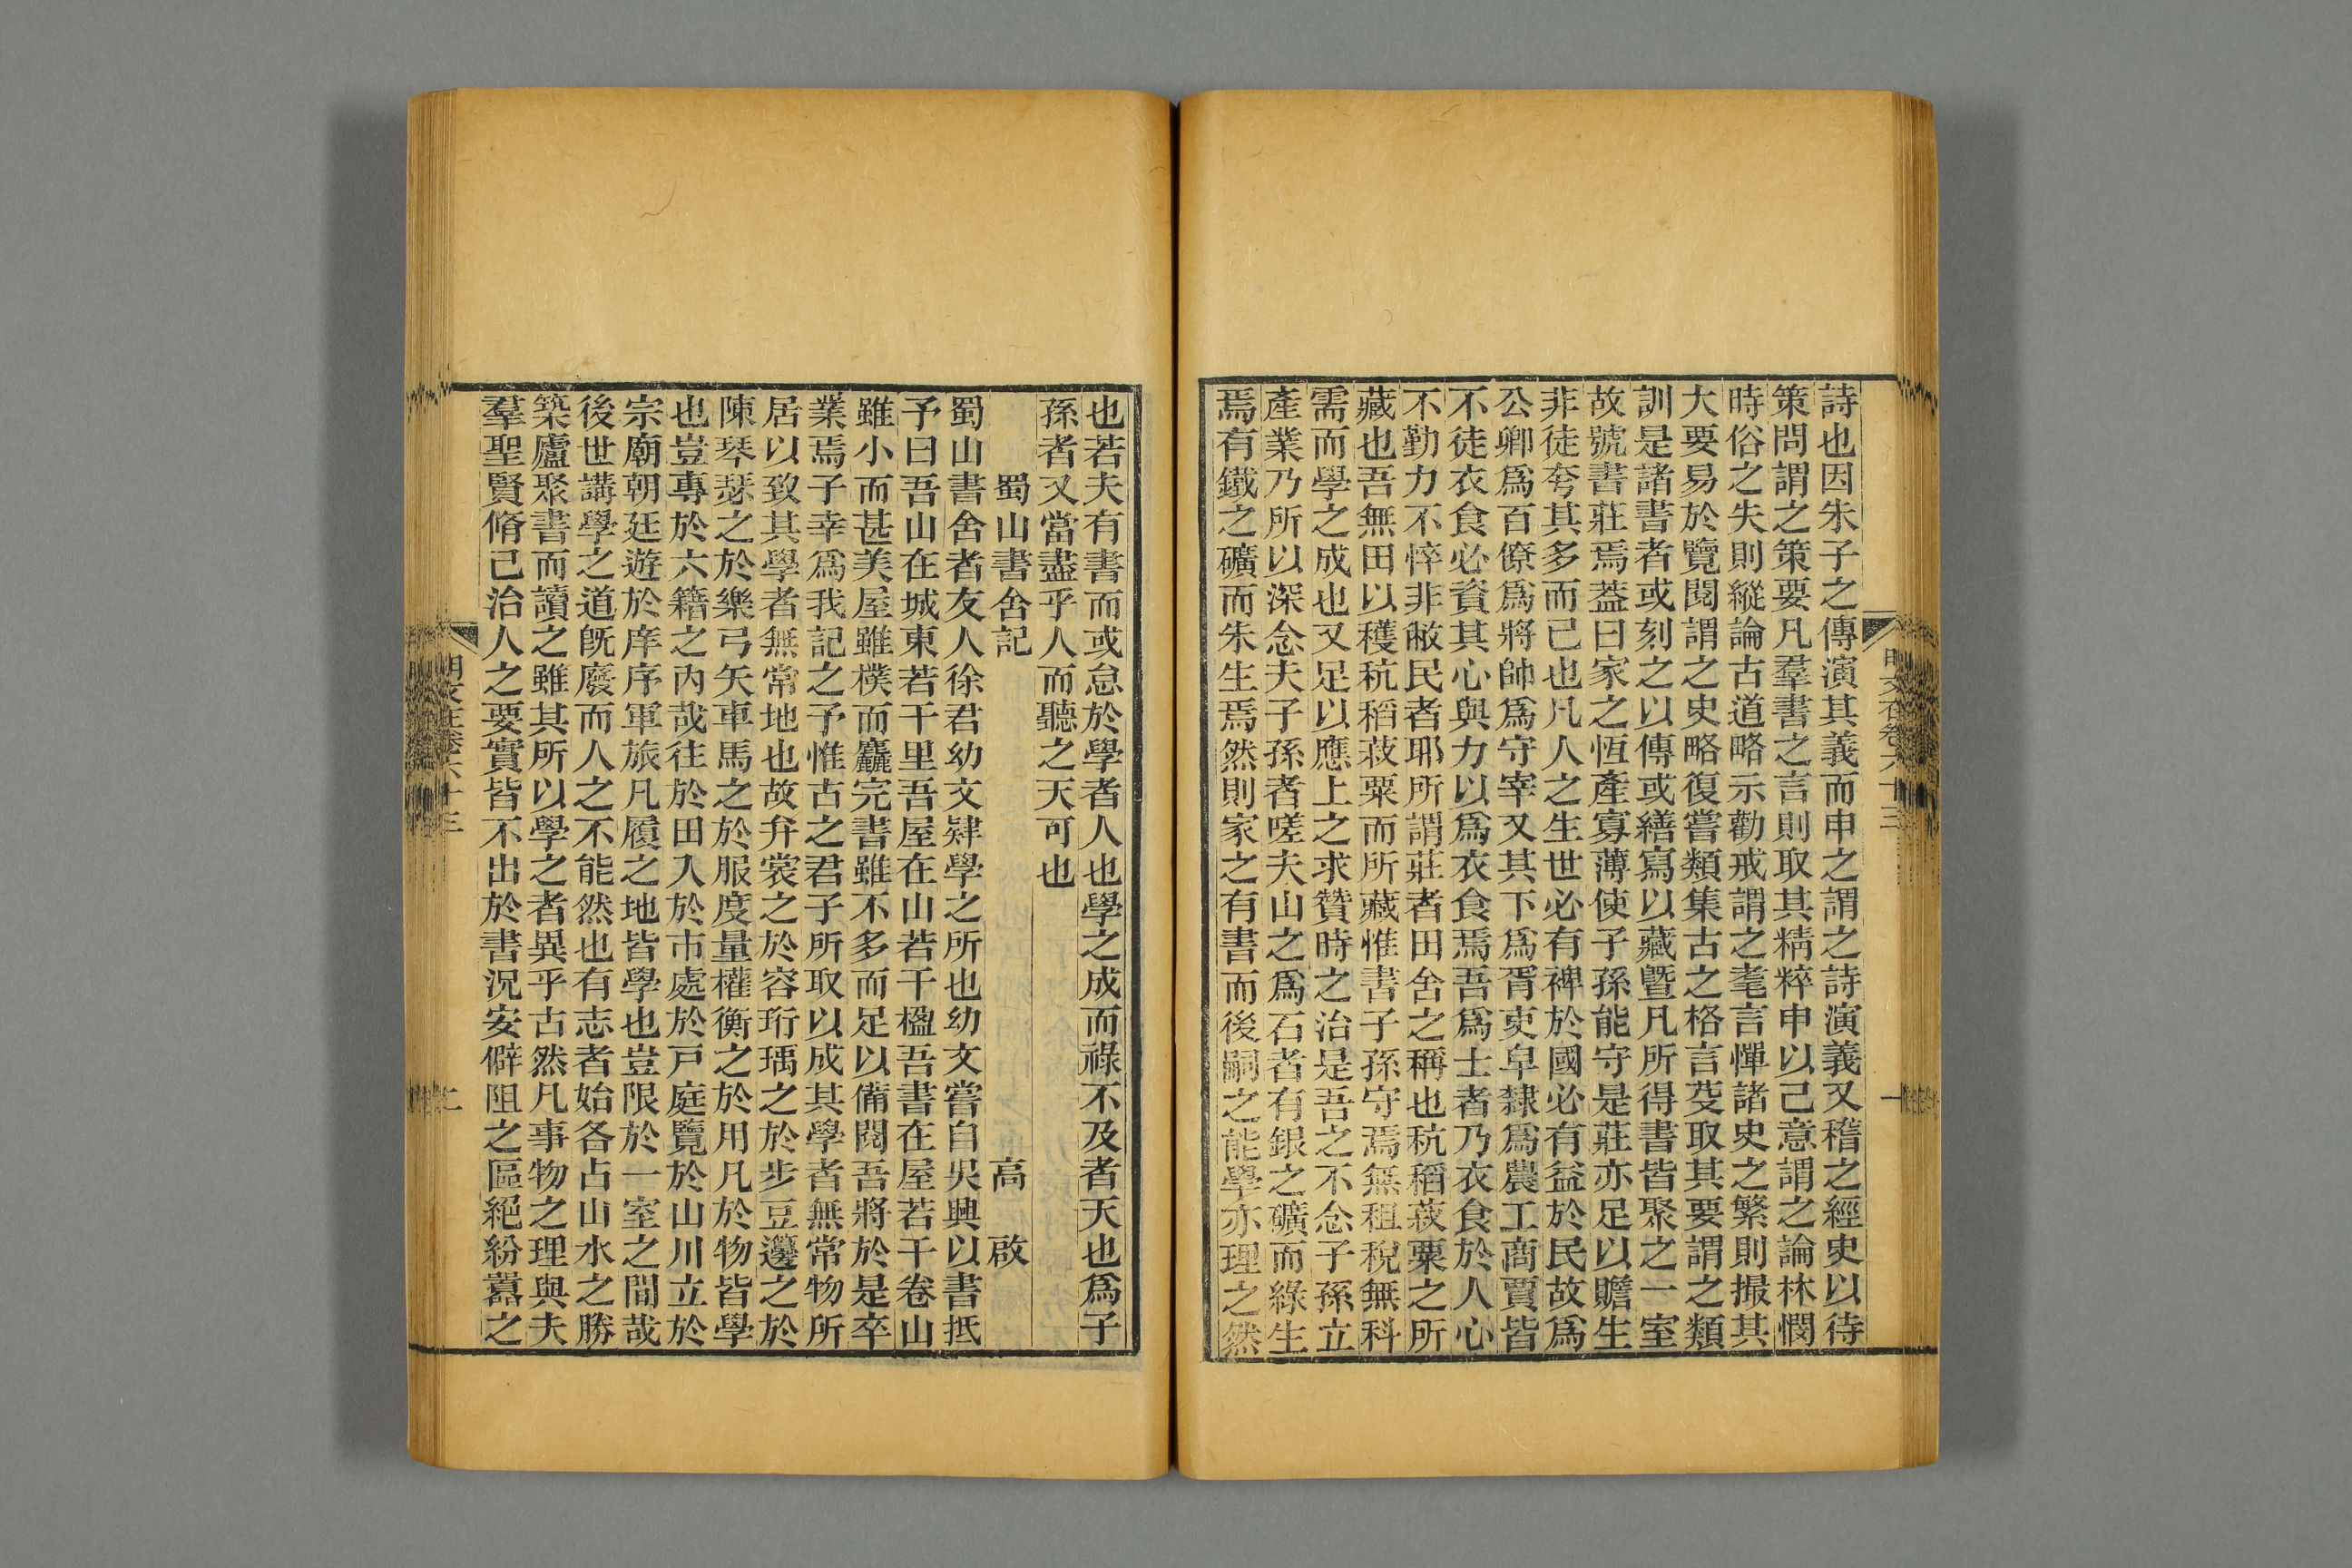 詩也因朱子之傳演其義而申之謂之詩演義又稽之經史以待
策問謂之策要凡羣書之言則取其精粹申以己意謂之論林憫
時俗之失則縱論古道略示勸戒謂之耄言憚諸史之繁則撮其
大要易於覽閱謂之史略復嘗類集古之格言芟取其要謂之類
訓是諸書者或刻之以傳或繕寫以藏曁凡所得書皆聚之一室
故號書莊焉蓋曰家之恆產寡薄使子孫能守是莊亦足以贍生
非徒夸其多而已也凡人之生世必有裨於國必有益於民故爲
公卿爲百僚爲將帥爲守宰又其下爲胥吏皁隸爲農工商賈皆
不徒衣食必資其心與力以爲衣食焉吾爲士者乃衣食於人心
不勤力不悴非敝民者耶所謂莊者田舍之稱也秔稻菽粟之所
藏也吾無田以穫秔稻菽粟而所藏惟書子孫守焉無租稅無科
需而學之成也又足以應上之求贊時之治是吾之不念子孫立
產業乃所以深念夫子孫者嗟夫山之爲石者有銀之礦而綠生
焉有鐵之礦而朱生焉然則家之有書而後嗣之能學亦理之然
明文在卷六十三
也若夫有書而或怠於學者人也學之成而祿不及者天也爲子
孫者又當盡乎人而聽之天可也
蜀山書舍記 高 啟
蜀山書舍者友人徐君幼文肄學之所也幼文嘗自吳興以書抵
予曰吾山在城東若干里吾屋在山若干楹吾書在屋若干卷山
雖小而甚美屋雖樸而麤完書雖不多而足以備閱吾將於是卒
業焉子幸爲我記之予惟古之君子所取以成其學者無常物所
居以致其學者無常地也故弁裳之於容珩瑀之於步豆籩之於
陳琴瑟之於樂弓矢車馬之於服度量權衡之於用凡於物皆學
也豈專於六籍之內哉往於田入於市處於戶庭覽於山川立於
宗廟朝廷遊於庠序軍旅凡履之地皆學也豈限於一室之間哉
後世講學之道旣廢而人之不能然也有志者始各占山水之勝
築廬聚書而讀之雖其所以學之者異乎古然凡事物之理與夫
羣聖賢脩己治人之要實皆不出於書況安僻阻之區絕紛囂之
明文在卷六十三